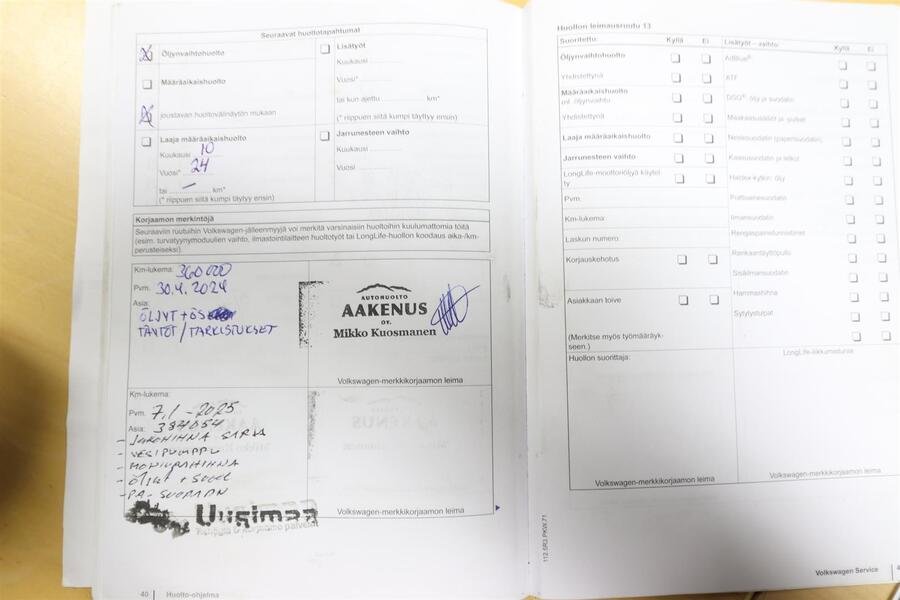 Seuraavat huoltotapahtumat
Öljynvaihtohuolto
Määräaikaishuolto
joustavan huoltovälinäytön mukaan
Laaja määräaikaishuolto
Kuukausi 10
Vuosi* 24
tai — km*
(* riippuen siitä kumpi täyttyy ensin)
Lisätyöt
Kuukausi
Vuosi*
tai kun ajettu km*
(* riippuen siitä kumpi täyttyy ensin)
Jarrunesteen vaihto
Kuukausi
Vuosi
Korjaamon merkintöjä
Seuraaviin ruutuihin Volkswagen-jälleenmyyjä voi merkitä varsinaisiin huoltoihin kuulumattomia töitä
(esim. turvatyynymoduulien vaihto, ilmastointilaitteen huoltotyöt tai LongLife-huollon koodaus aika-/km-
perusteiseksi).
Km-lukema: 360 000
Pvm. 30.4.2024
Asia:
ÖLJYT + ÖS
TÄYTÖT / TARKISTUKSET
AUTOHUOLTO
AAKENUS
OY.
Mikko Kuosmanen
Volkswagen-merkkikorjaamon leima
Km-lukema:
Pvm. 7.1-2025
Asia: 384054
- JAKOHIHNA SARJA
- VESIPUMPPU
- MONIURAHIHNA
- Öljyt + suod
- PA-SUODATIN
Uusimaa
Volkswagen-merkkikorjaamon leima
40 Huolto-ohjelma
Huollon leimausruutu 13
Suoritettu: Kyllä Ei
Öljynvaihtohuolto
Yhdistettynä
Määräaikaishuolto
ml. öljynvaihto
Yhdistettynä
Laaja määräaikaishuolto
Jarrunesteen vaihto
LongLife-moottoriöljyä käytet-
ty
Pvm.
Km-lukema:
Laskun numero:
Korjauskehotus
Asiakkaan toive
(Merkitse myös työmääräyk-
seen.)
Huollon suorittaja:
Volkswagen-merkkikorjaamon leima
Lisätyöt – vaihto: Kyllä Ei
AdBlue®
ATF
DSG®: öljy ja suodatin
Haldex-kytkin: öljy
Polttoainesuodatin
Ilmansuodatin
Rengaspainetunnistimet
Renkaantäyttöpullo
Sisäilmansuodatin
Hammashihna
Sytytystulpat
LongLife-liikkumisturva
Volkswagen-merkkikorjaamon leima
112.5R3.PKW.71
Volkswagen Service